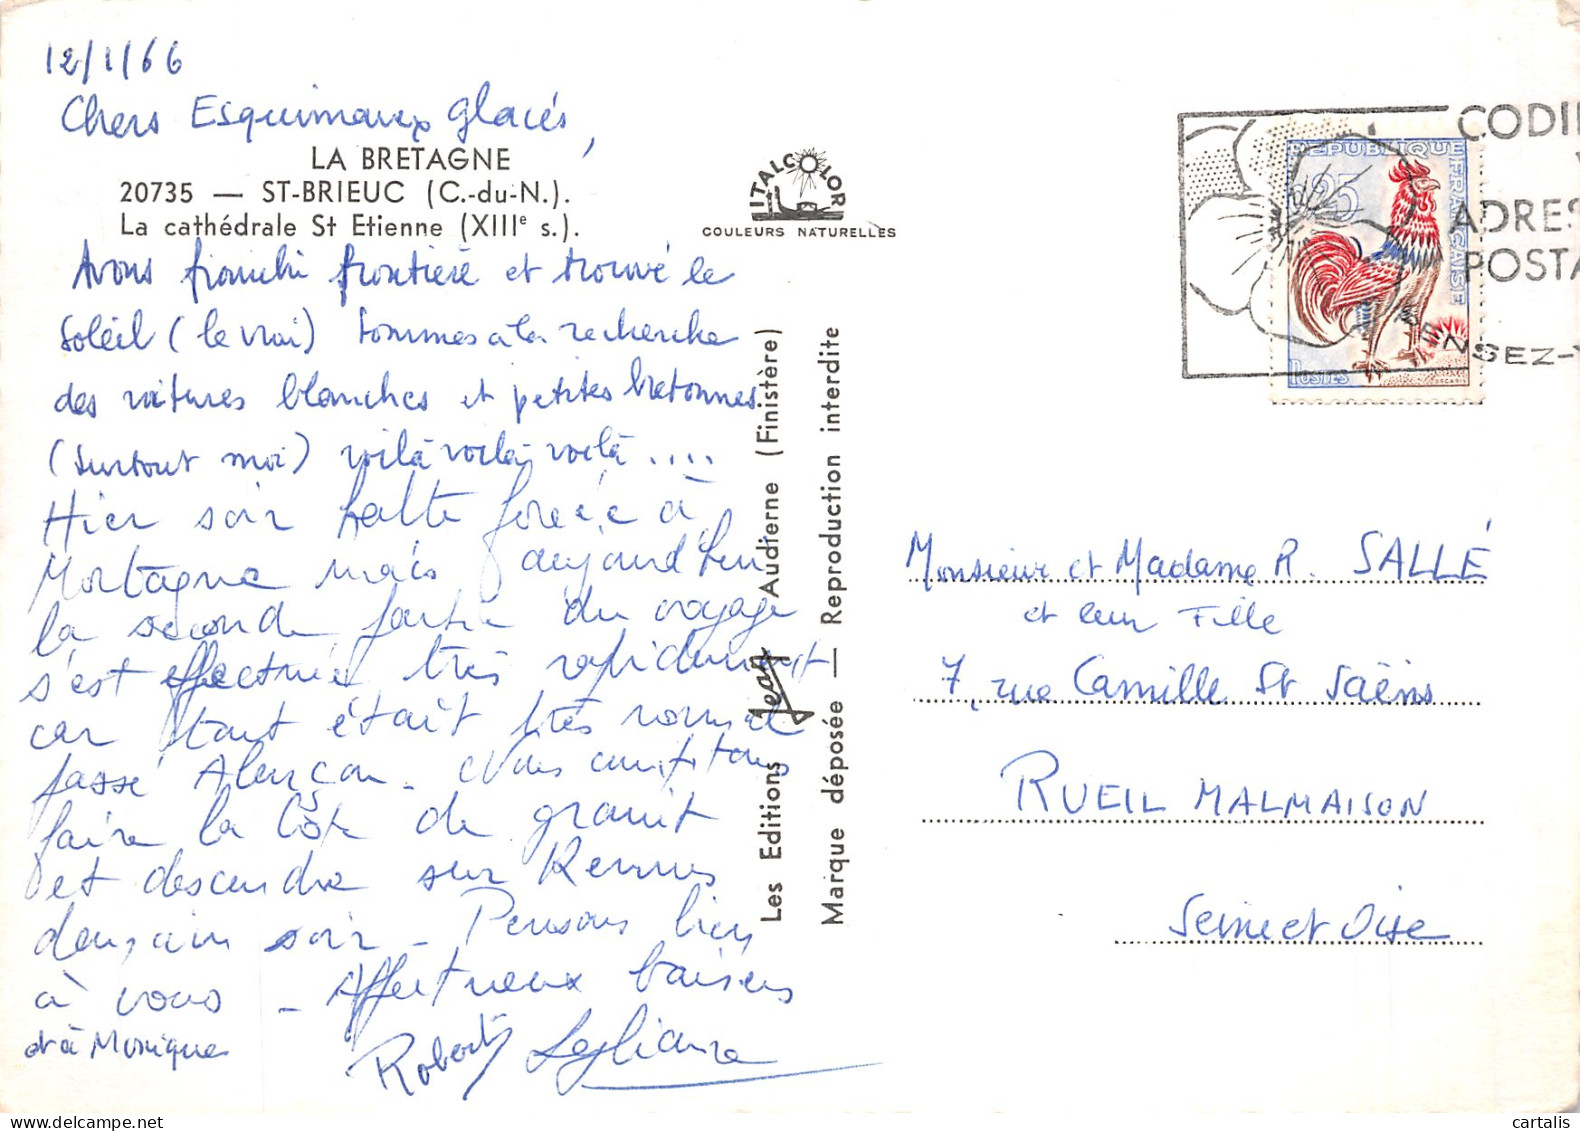 12/1/66
Chers Esquimaux glacés,
LA BRETAGNE
20735 — ST-BRIEUC (C.-du-N.).
La cathédrale St Etienne (XIIIe s.).
Avons franchi frontière et trouvé le
soleil (le vrai) sommes à la recherche
des voitures blanches et petites bretonnes
(surtout moi) voilà voilà voilà ....
Hier soir halte forcée à
Mortagne mais aujourd'hui
la seconde partie du voyage
s'est effectuée très rapidement
car tout était très normal
passé Alençon. Nous comptons
faire la Côte de granit
et descendre sur Rennes
demain soir – Pensons bien
à vous – Affectueux baisers
et à Monique
Robert
ITALCOLOR
COULEURS NATURELLES
Les Editions Jean Audierne (Finistère)
Marque déposée — Reproduction interdite
REPUBLIQUE FRANÇAISE
0,25
POSTES
DECARIS
CODI
ADRES
POSTA
PENSEZ-Y
Monsieur et Madame R. SALLÉ
et leur Fille
7, rue Camille St Saëns
RUEIL MALMAISON
Seine et Oise
cartalis